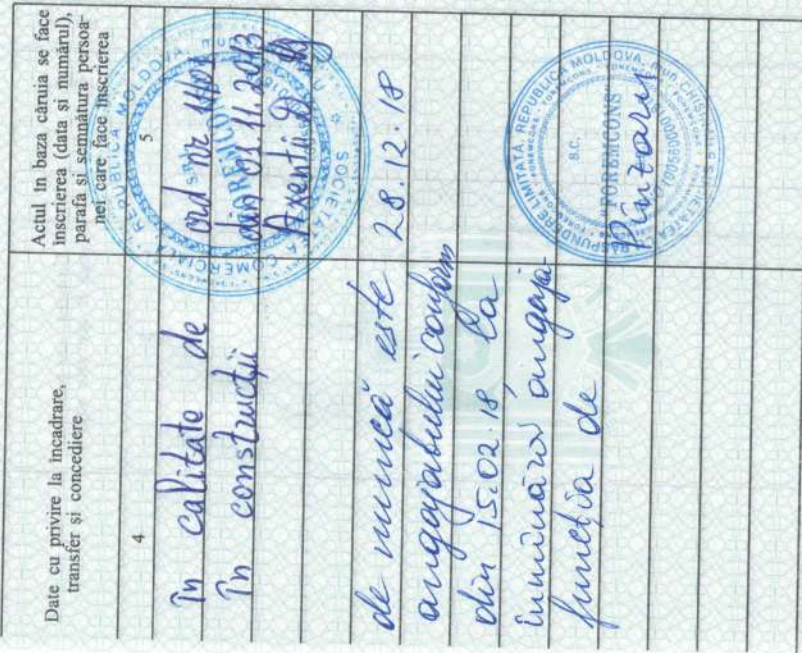 Date cu privire la încadrare,
transfer și concediere
Actul în baza căruia se face
înscrierea (data și numărul),
parafa și semnătura persoa-
nei care face înscrierea
4
5
în calitate de
ord nr
în construcții
din 01.11.2013
Axentii D
de muncă este
28.12.18
angajatului conform
din 15.02.18 la
înmînată angaja-
funcția de
REPUBLICA MOLDOVA
SOCIETATEA COMERCIALĂ
RĂSPUNDERE LIMITATĂ, REPUBLICA MOLDOVA, mun. CHIȘINĂU
SOCIETATEA
S.C.
"FOREMCONS"
Pînzaru